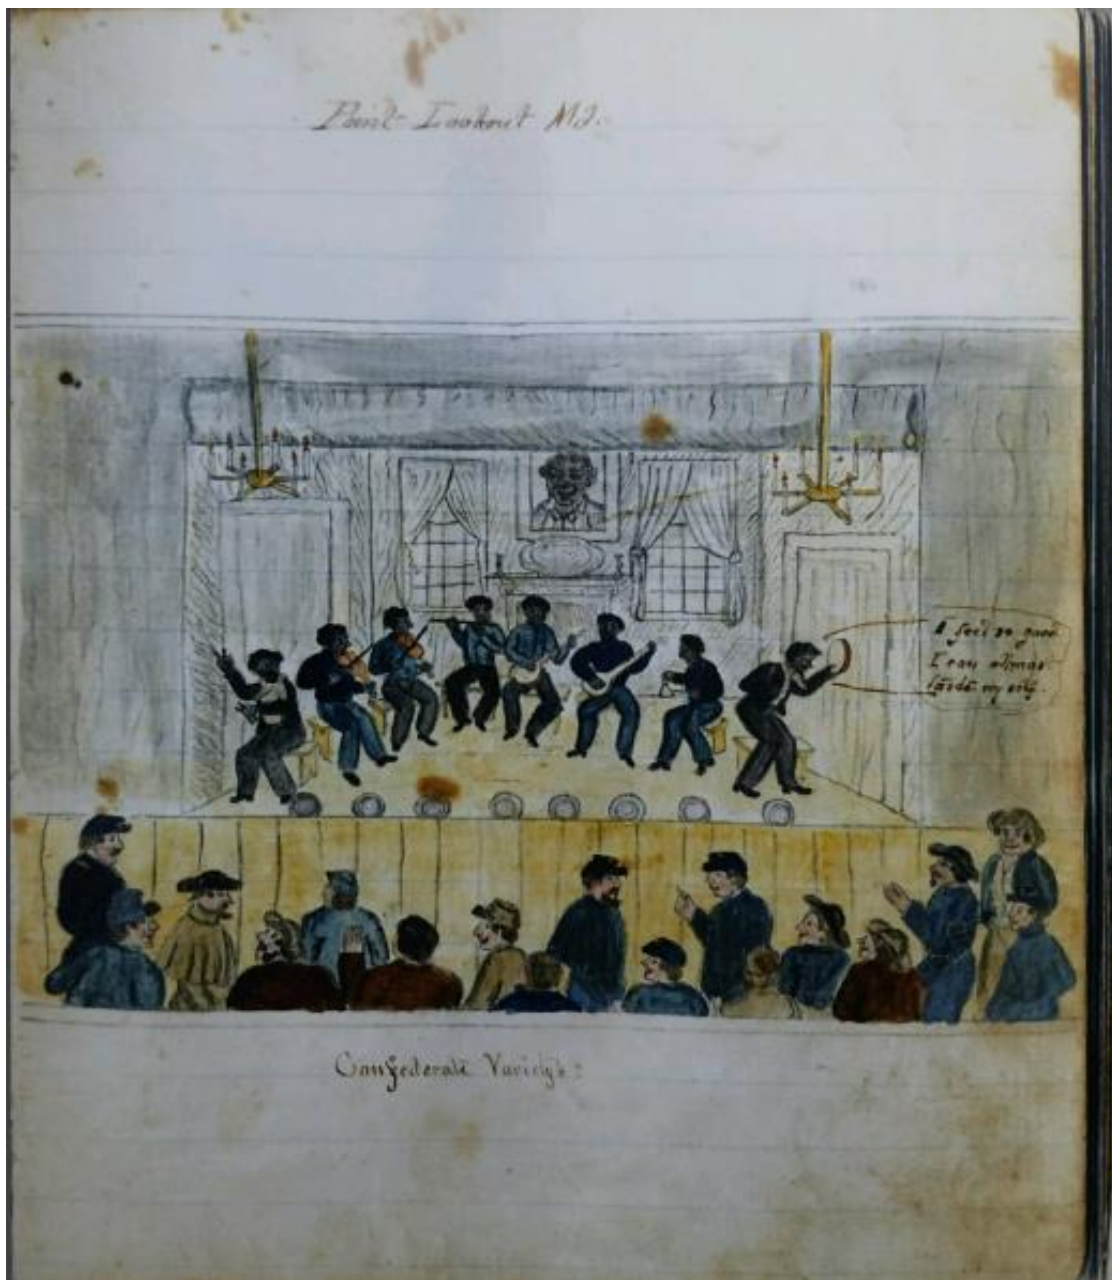 Point Lookout Md.
I feel so good
I can almost
my self.
Confederate Variety's.